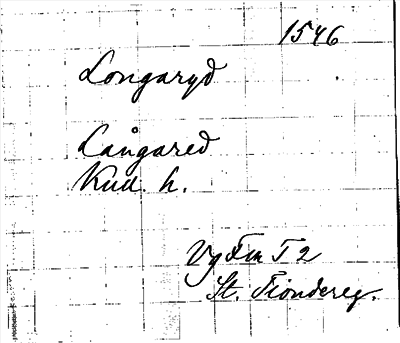 1546
Longaryd
Långared
Kull. h.
Vg Fm T 2
St. Tiondereg.